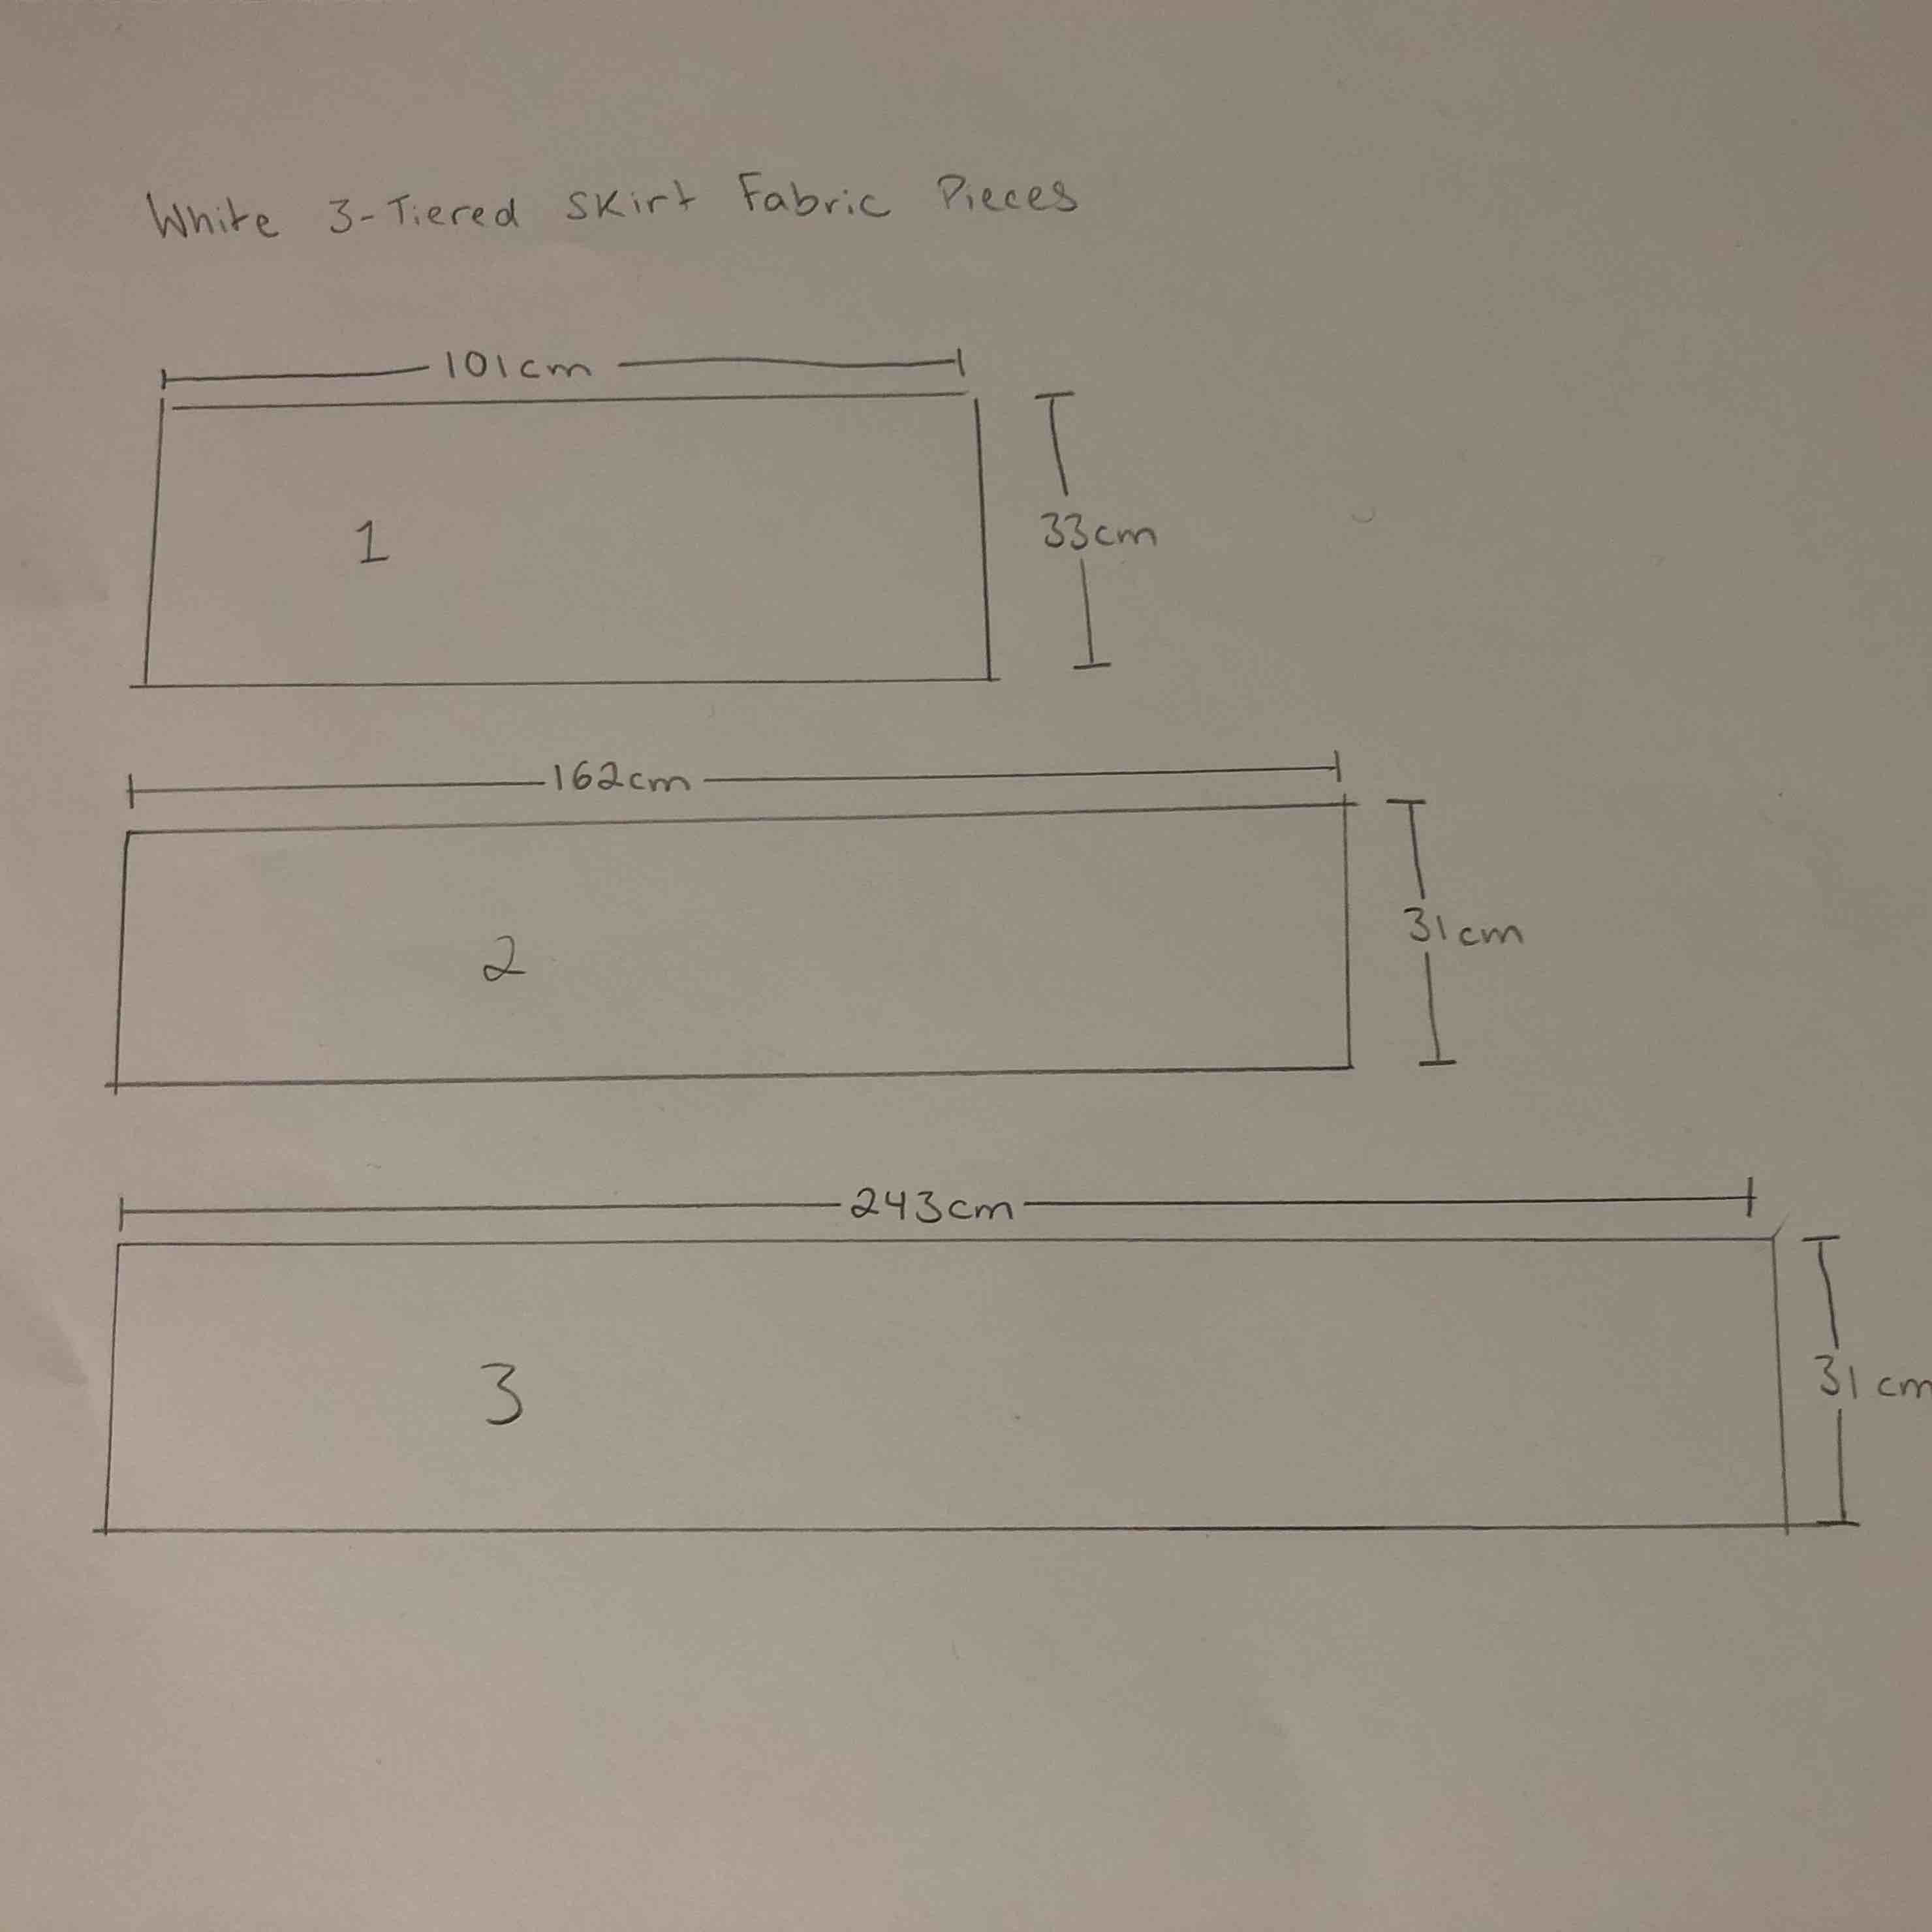 White 3-Tiered Skirt Fabric Pieces
101cm
1
33cm
162cm
2
31cm
243cm
3
31cm